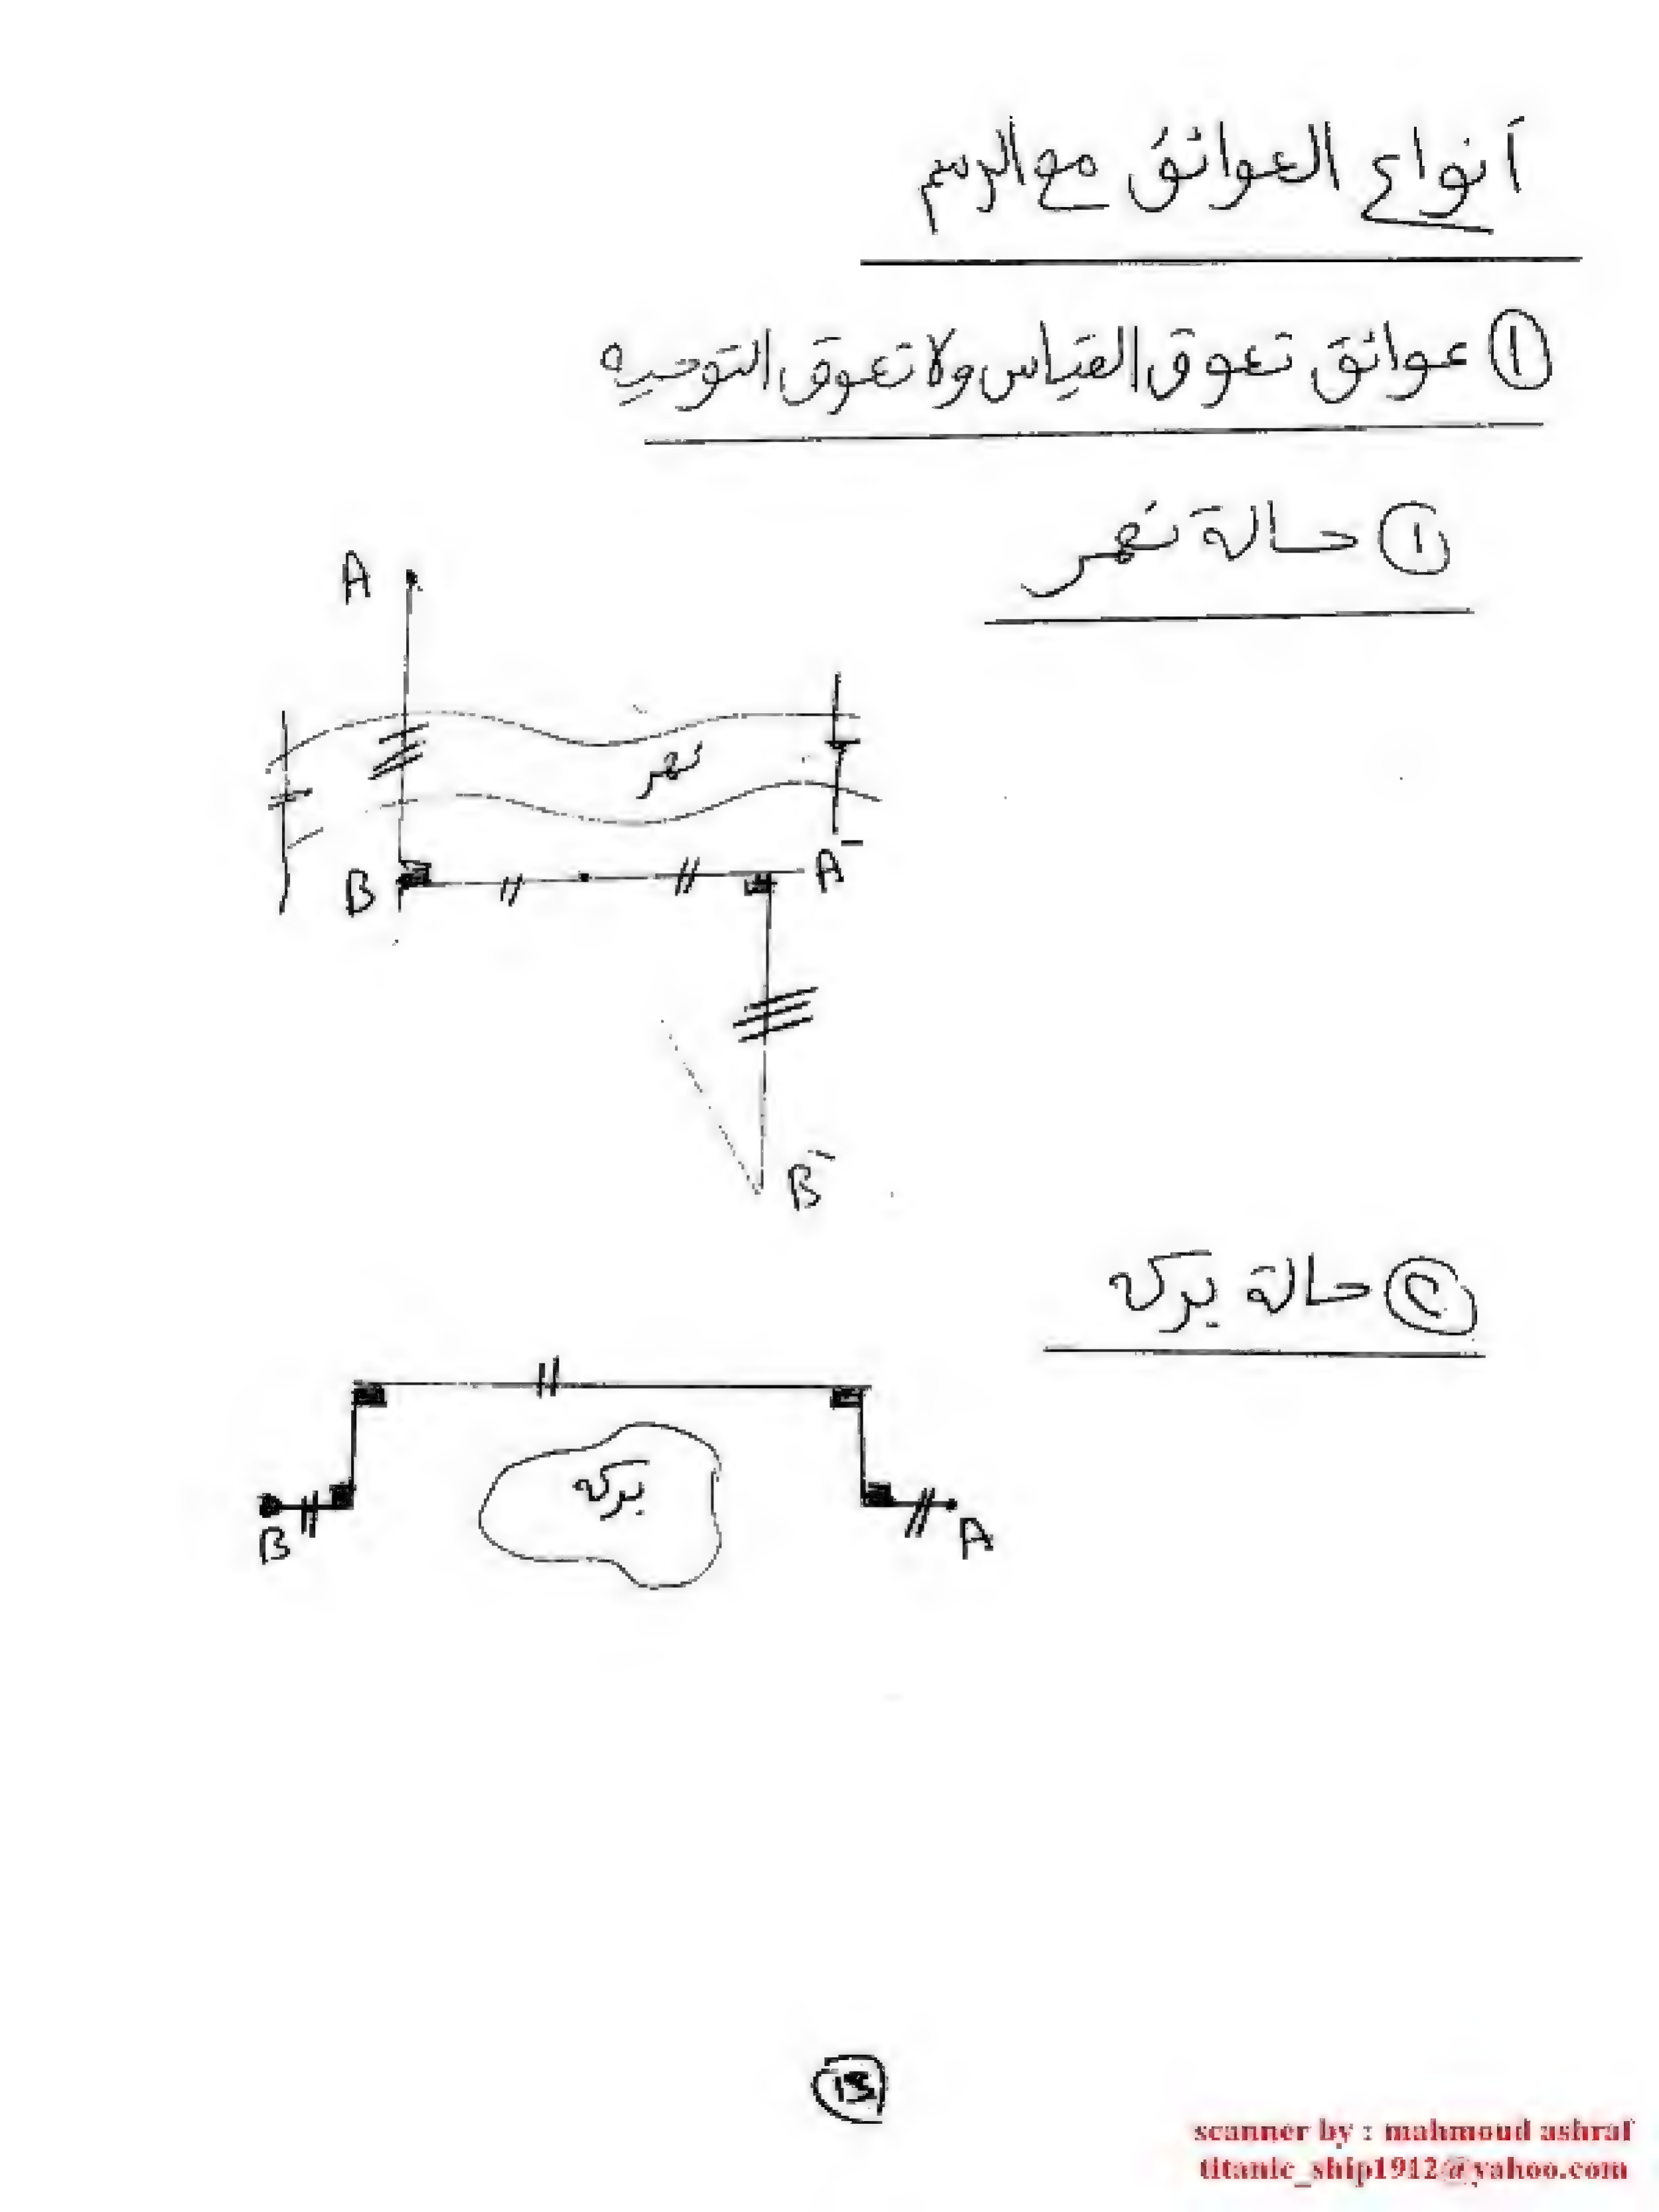 أنواع العوائق مع الرسم
① عوائق تعوق القياس ولا تعوق التوجيه
① حالة نهر
A
نهر
B
A'
B'
② حالة بركه
بركه
B
A
scanner by : mahmoud ashraf
titanic_ship1912@yahoo.com